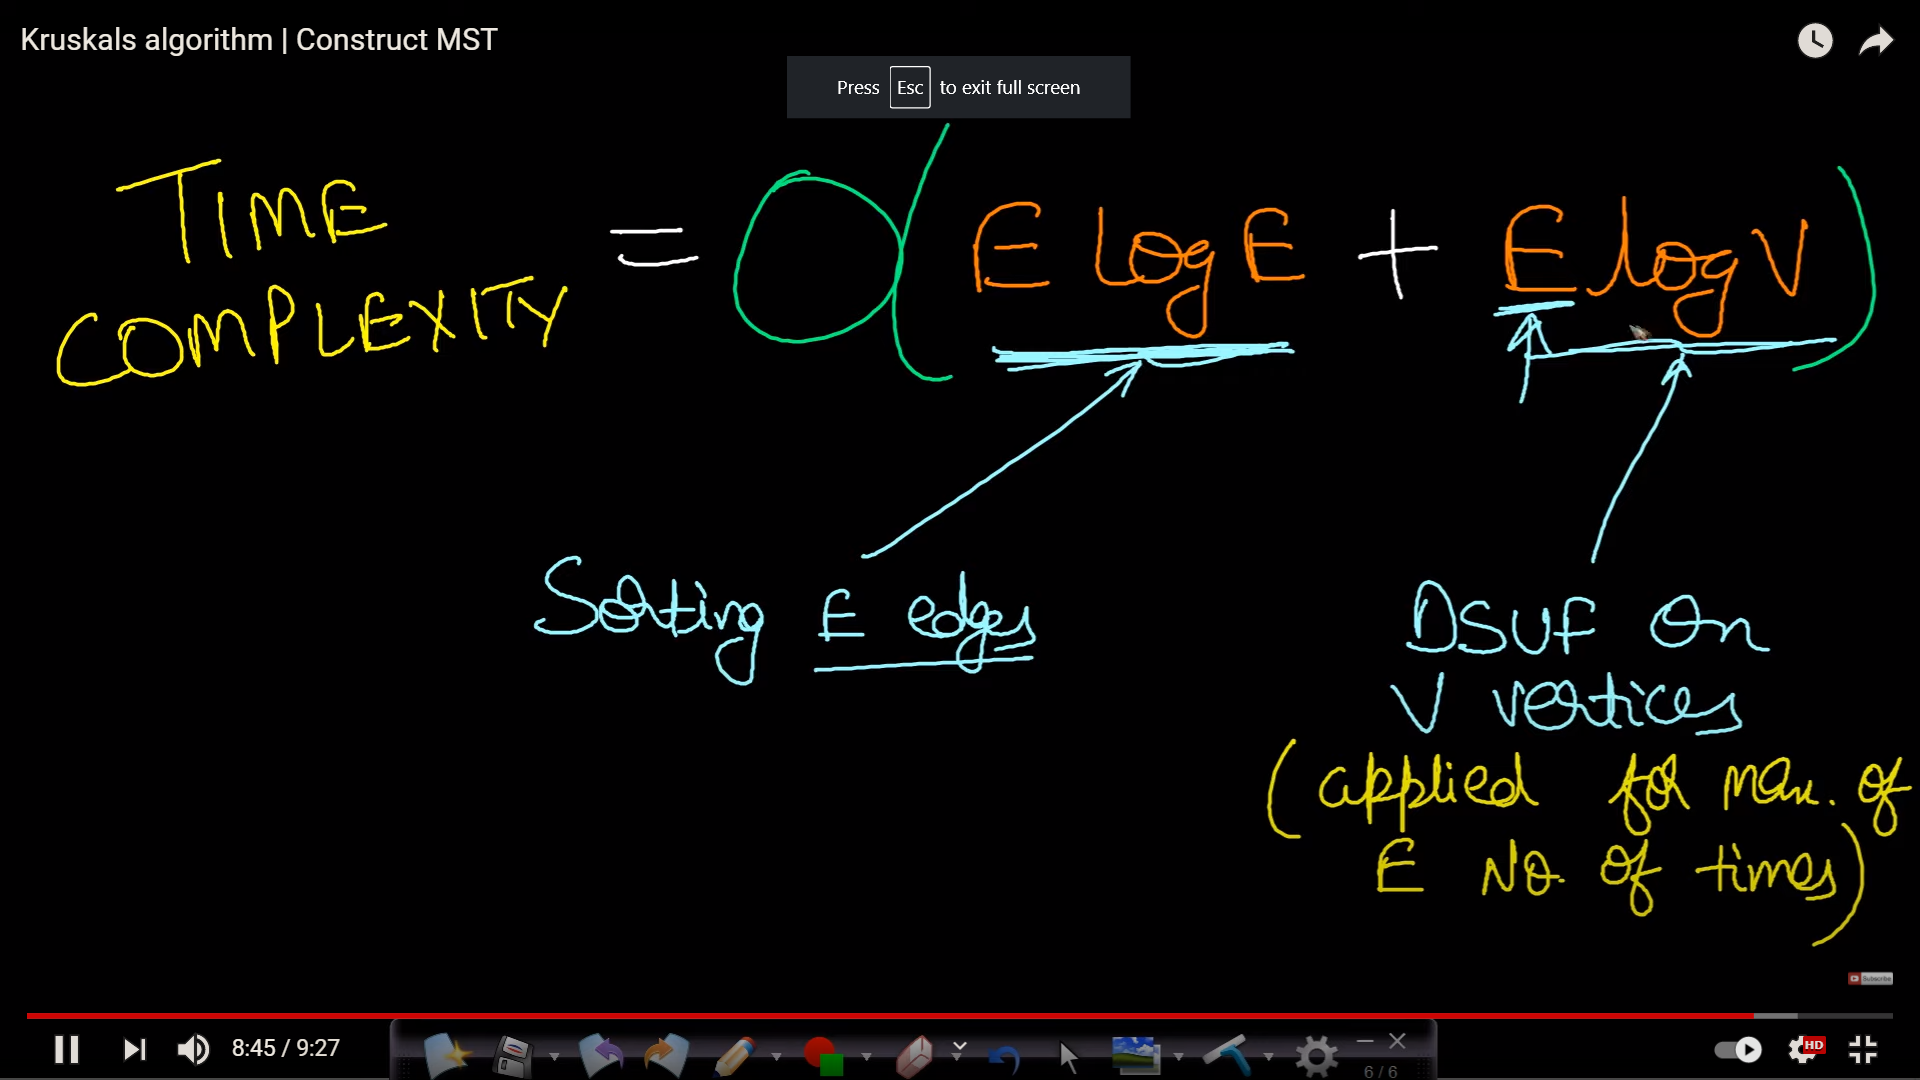 Kruskals algorithm | Construct MST
Press Esc to exit full screen
TIME
COMPLEXITY
= O( E log E + E log V )
Sorting E edges
DSUF on
V vertices
(applied for max. of
E No. of times)
Subscribe
8:45 / 9:27
HD
6 / 6